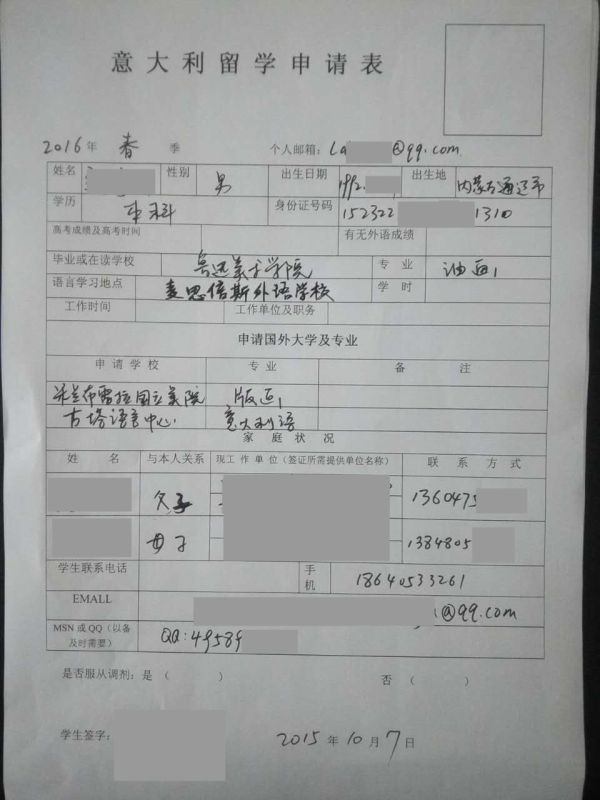 意大利留学申请表
2016年 春 季 个人邮箱:La @qq.com
姓名 性别 男 出生日期 1992. 出生地 内蒙古通辽市
学历 本科 身份证号码 152322 1310
高考成绩及高考时间 有无外语成绩
毕业或在读学校 鲁迅美术学院 专业 油画
语言学习地点 麦思倍斯外语学校 学时
工作时间 工作单位及职务
申请国外大学及专业
申请学校 专业 备注
米兰布雷拉国立美院 版画
古塔语言中心 意大利语
家庭状况
姓名 与本人关系 现工作单位(签证所需提供单位名称) 联系方式
父子 1360475
母子 1384805
学生联系电话 手机 18640533261
EMALL @qq.com
MSN 或 QQ(以备及时需要) QQ:49589
是否服从调剂:是( ) 否( )
学生签字: 2015年10月7日